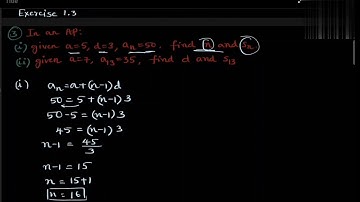 Exercise 1.3
③ In an AP:
(i) given a=5, d=3, aₙ=50. find n and Sₙ
(ii) given a=7, a₁₃=35, find d and S₁₃
(i) aₙ=a+(n-1)d
50=5+(n-1)3
50-5=(n-1)3
45=(n-1)3
n-1=45/3
n-1=15
n=15+1
n=16